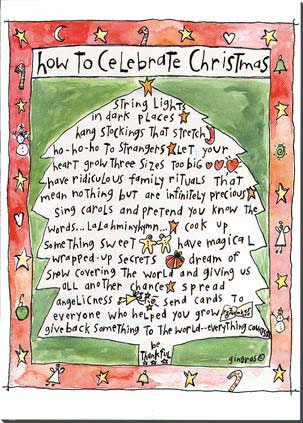 how To CeLeBraTe ChrisTmas
String Lights
in dark places
hang stockings That STreTch
ho-ho-ho To STrangers Let your
heart grow Three Sizes Too big
have ridiculous family rituals That
mean nothing but are infinitely precious
Sing carols and pretend you know the
words...LaLahminyhymn... cook up
Something sweet have magical
wrapped-up secrets dream of
Snow covering The world and giving us
all another chance spread
angelicness send cards to
everyone who helped you grow
give back something To The world...everything counts
be
Thankful
gingras©